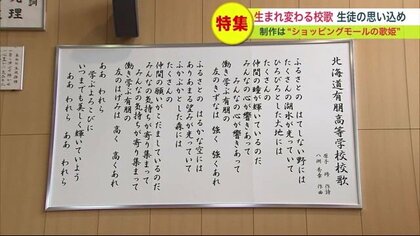 特集
生まれ変わる校歌 生徒の思い込め
制作は“ショッピングモールの歌姫”
理
北海道有朋高等学校校歌
原子 修 作詩
八洲 秀章 作曲
ふるさとの はてしない野には
たくさんの湖水が光っていて
ひろびろとした大地には
たくさんの
仲間の瞳が輝いているのだ
みんなの心が響きあって
みんなの心が響きあって
働き学ぶ有朋の
友のきずなは 強く 強くあれ
ふるさとの はるかな空には
あまたの望みが光っていて
ふかぶかとした森には
たくさんの
仲間の願いがこだましているのだ
みんなの気持ちが寄り集まって
みんなの気持ちが寄り集まって
働き学ぶ有朋の
友のはげみは 高く 高くあれ
ああ われら
学ぶよろこびに
いつまでも美しく輝いていよう
ああ われら
ああ われら